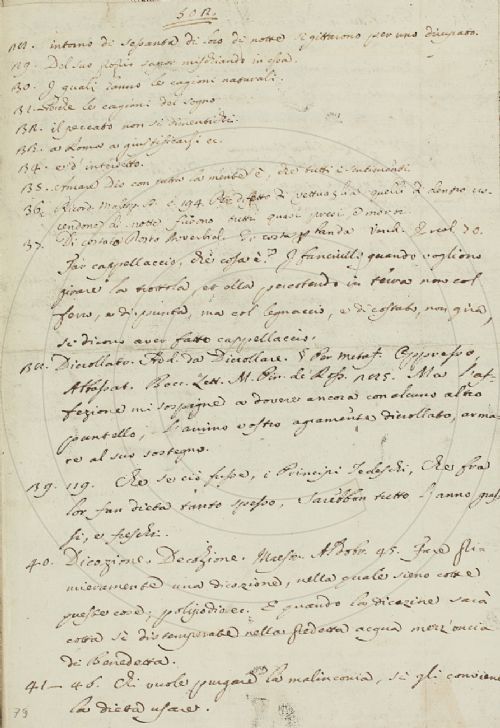 502.
128. intorno di sessanta di loro di notte si gittarono per uno dirupato.
129. Del suo sapor mischiando in essa.
130. I quali sanno le cagioni naturali.
131. le cagioni del sogno
132. il peccato non si dimentichi.
133. a Roma a giustificarsi ec.
134. ed interdetto.
135. Amare Dio con tutta la mente è, che tutti i sentimenti.
36. Ricord. Malesp. 194. Per difetto di vettuaglia quelli di dentro uscendone di notte furono tutti quasi presi e morti.
37. Di costato Posto Avverbial. Di costa, Varch. Ercol. 70.
Far cappellaccio, che cosa è? I fanciulli quando vogliono
girare la trottola, ed ella percotendo in terra non col
ferro, e di punta, ma col legnaccio, e di costato, non gira,
si dicono aver fatto cappellaccio.
138. Dicollato. Add. da Dicollare. § Per metaf. Oppresso,
Abbassat. Bocc. Lett. M. Pin. de Ross. 285. Ma l'af-
fezione mi sospigne a dovere ancora con alcuno altro
puntello, l'animo vostro agramente dicollato, arma-
re al suo sostegno.
139. 119. Che se ciò fusse, i Principi Tedeschi, che fra
lor fan dieta tanto spesso, Sarebbon tutto l'anno gras-
si, e freschi.
40. Dicozione. Decozione. Maestr. Aldobr. 45. Fare
una dicozione, nella quale sieno cotte
queste cose; polipodio ec. E quando la dicozine sarà
cotta si distemperate nella predetta acqua mezz'oncia
di Benedetta.
41 — 46. Chi vuole purgare la malinconia, se gli conviene
la dieta usare.
79